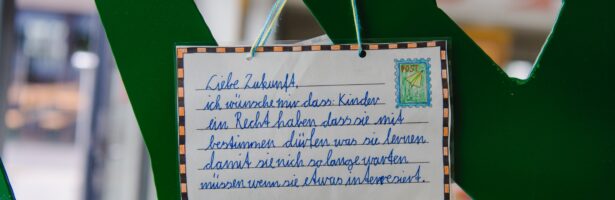 Liebe Zukunft,
POST
ich wünsche mir dass: Kinder
ein Recht haben dass sie mit
bestimmen dürfen was sie lernen
damit sie nich so lange warten
müssen wenn sie etwas interesiert.